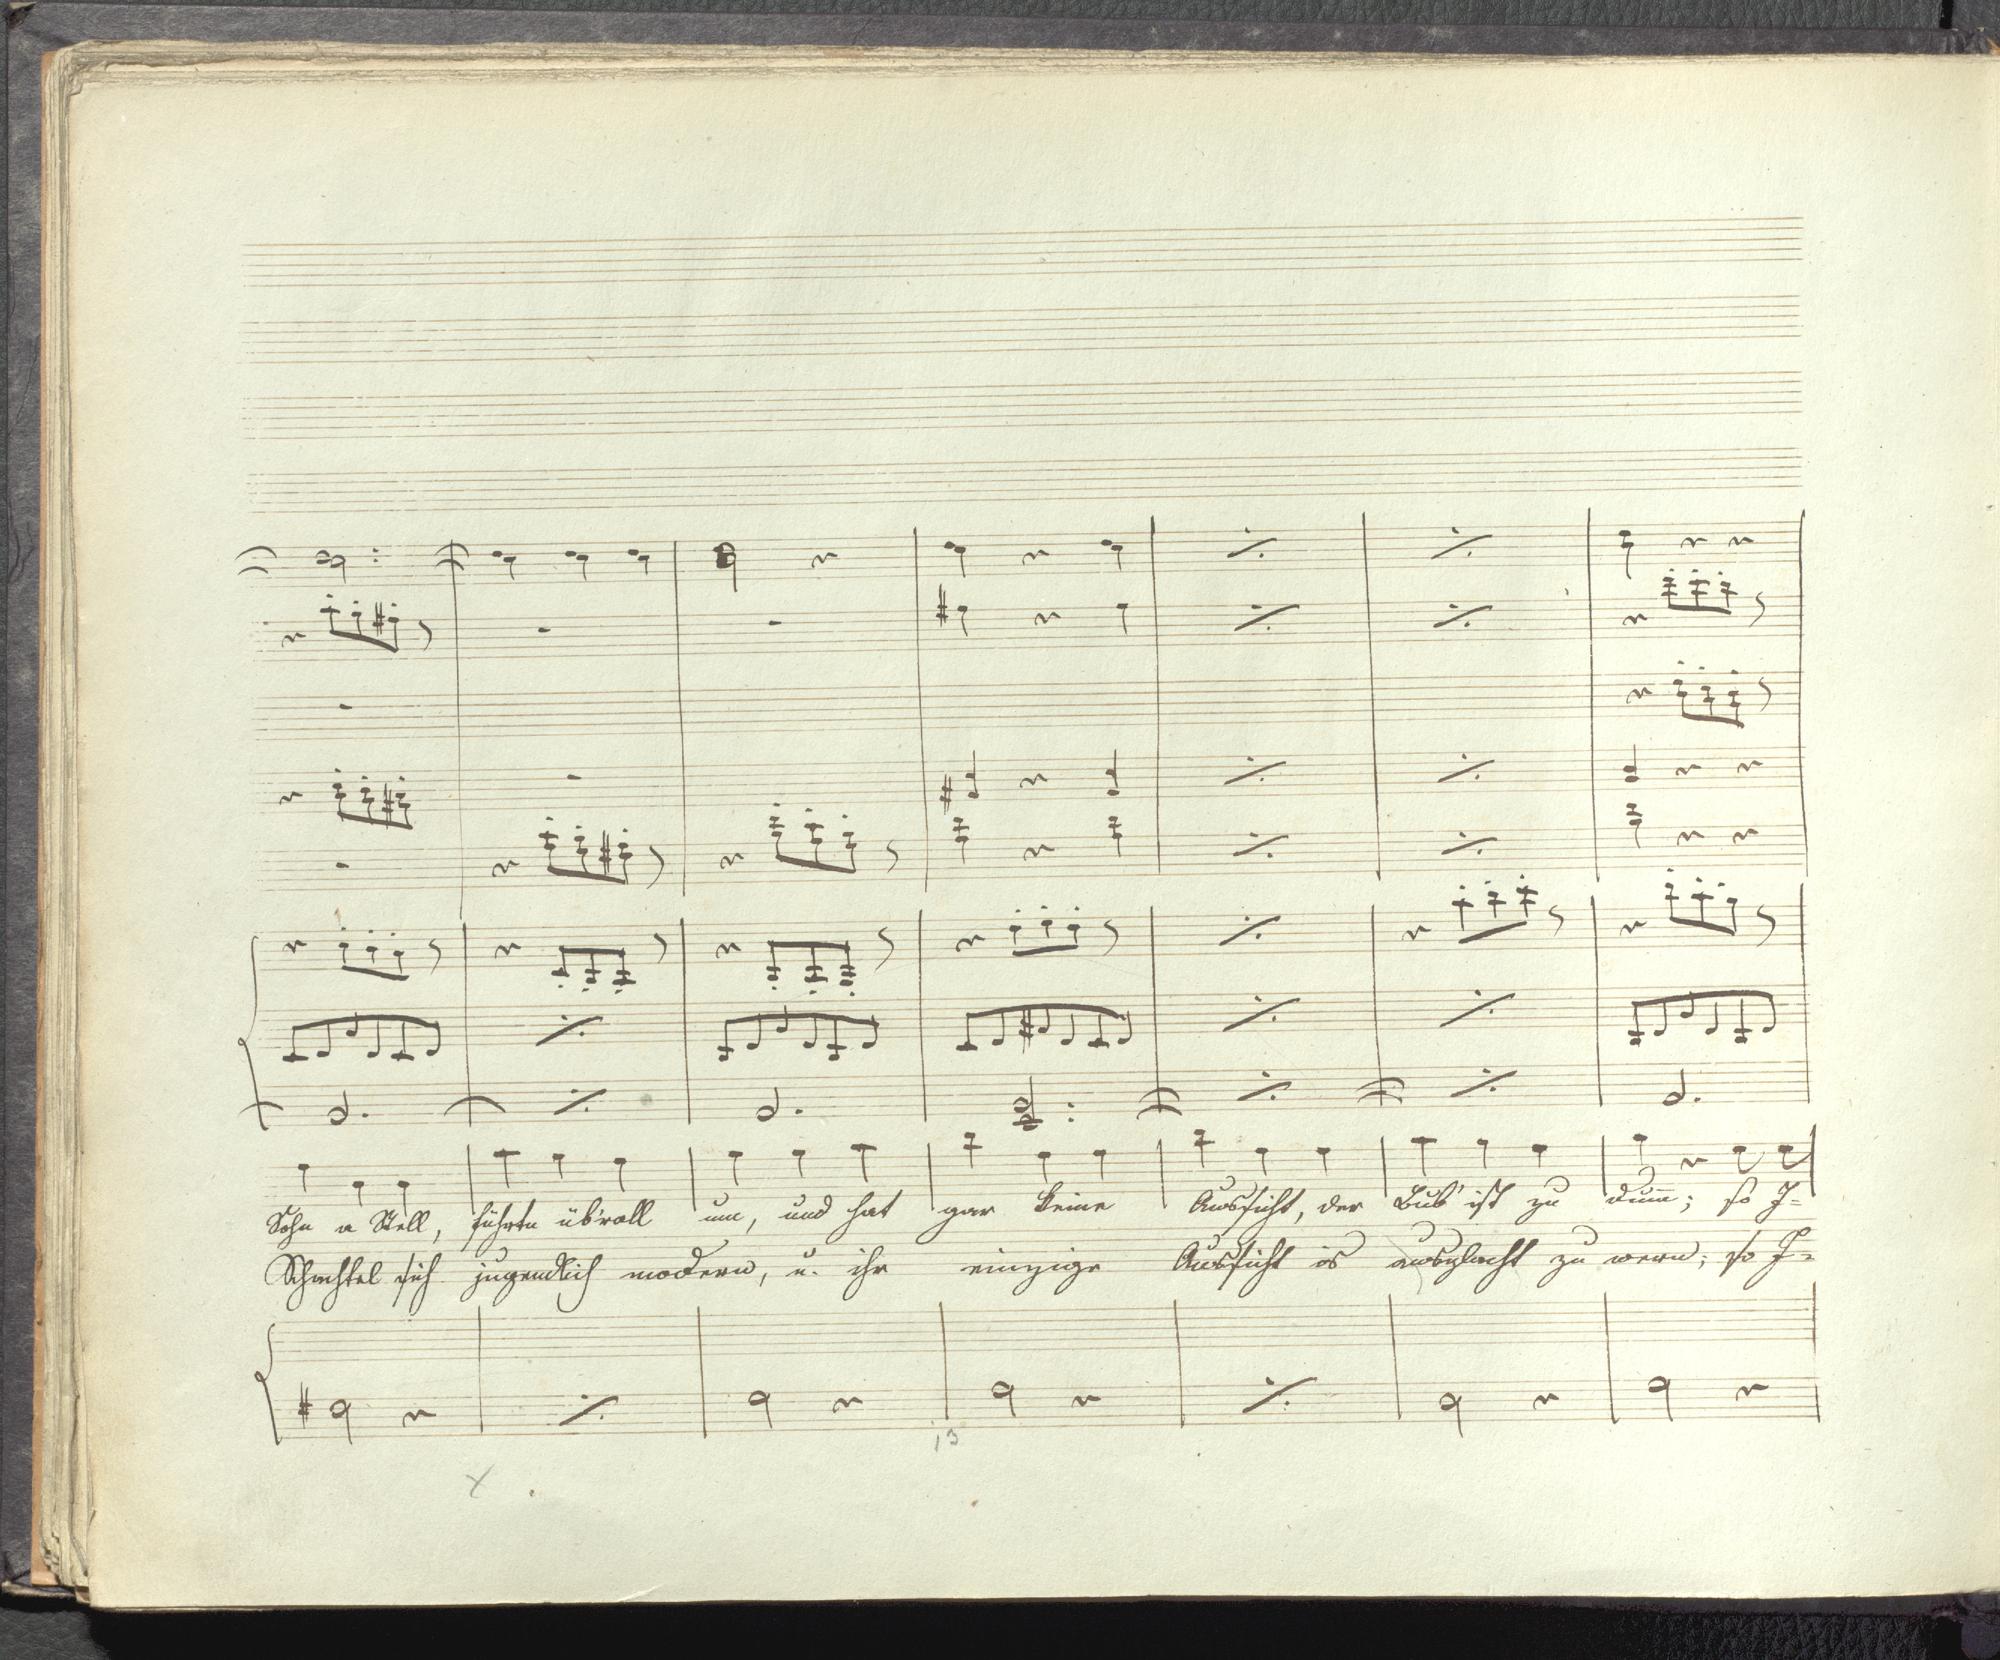 Sohn a Stell, führtn übrall um, und hat gar keine Aussicht, der Bub' ist zu dum̅; so J=
Schachtel sich jugendlich modern, u. ihr einzige Aussicht is ausglacht zu wern; so J=
13